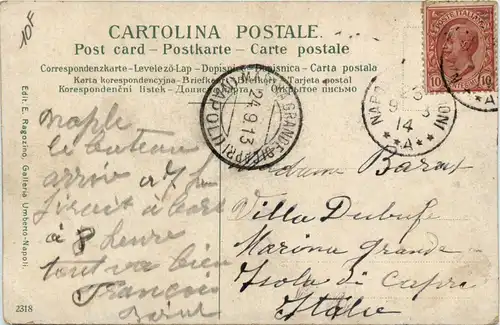 10F
CARTOLINA POSTALE.
Post card - Postkarte - Carte postale
Correspondenzkarte-Levelező-Lap-Dopisnice-Dopisnica-Carta postala
Karta korespondencyjna-Briefkort-Brefkort-Tarjeta postal
Korespondenční lístek-Дописна карта-Открытое письмо
POSTE ITALIANE
10 10
MARINA GRANDE DI CAPRI (NAPOLI)
24.9.13
14
*A*
Edit. E. Ragozino, Galleria Umberto-Napoli
Naple
le bateau
arrive à 7 h
à 8 heure
tout va bien
François
Barat
Madame Barat
Villa Dubufe
Marina Grande
Isola di Capri
Italie
2318